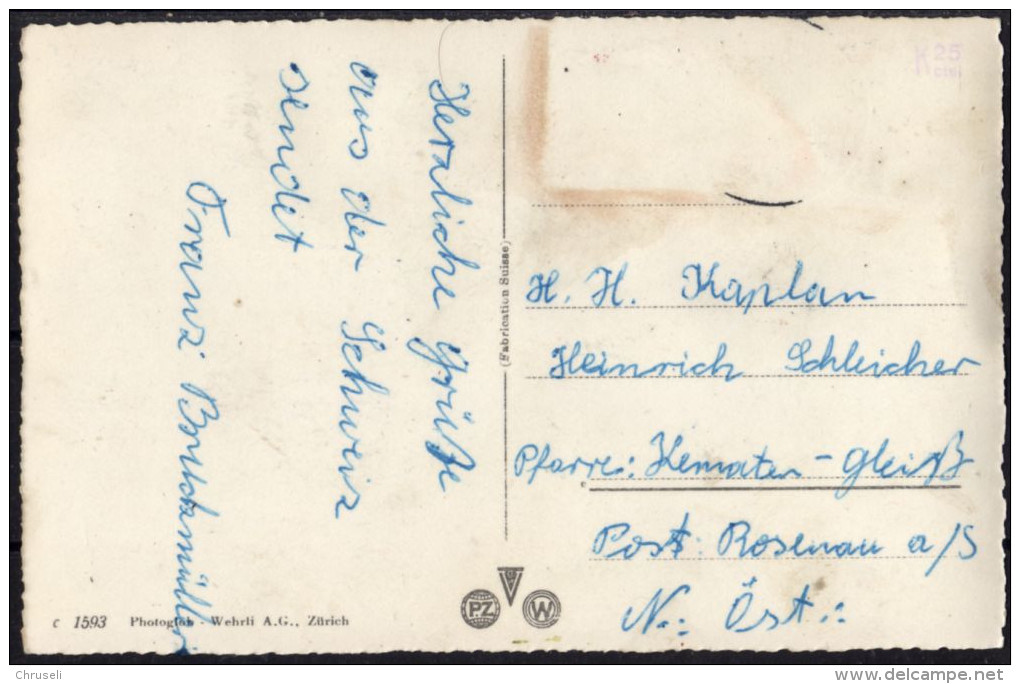 Herzliche Grüße
aus der Schweiz
sendet
Franz Bruckmüller
(Fabrication Suisse)
K 25
H. H. Kaplan
Heinrich Schleicher
Pfarre: Kematen - Gleiß
Post: Rosenau a/S
N.: Öst.:
PZ
W
c 1593 Photoglob - Wehrli A.G., Zürich
Chruseli
www.delcampe.net